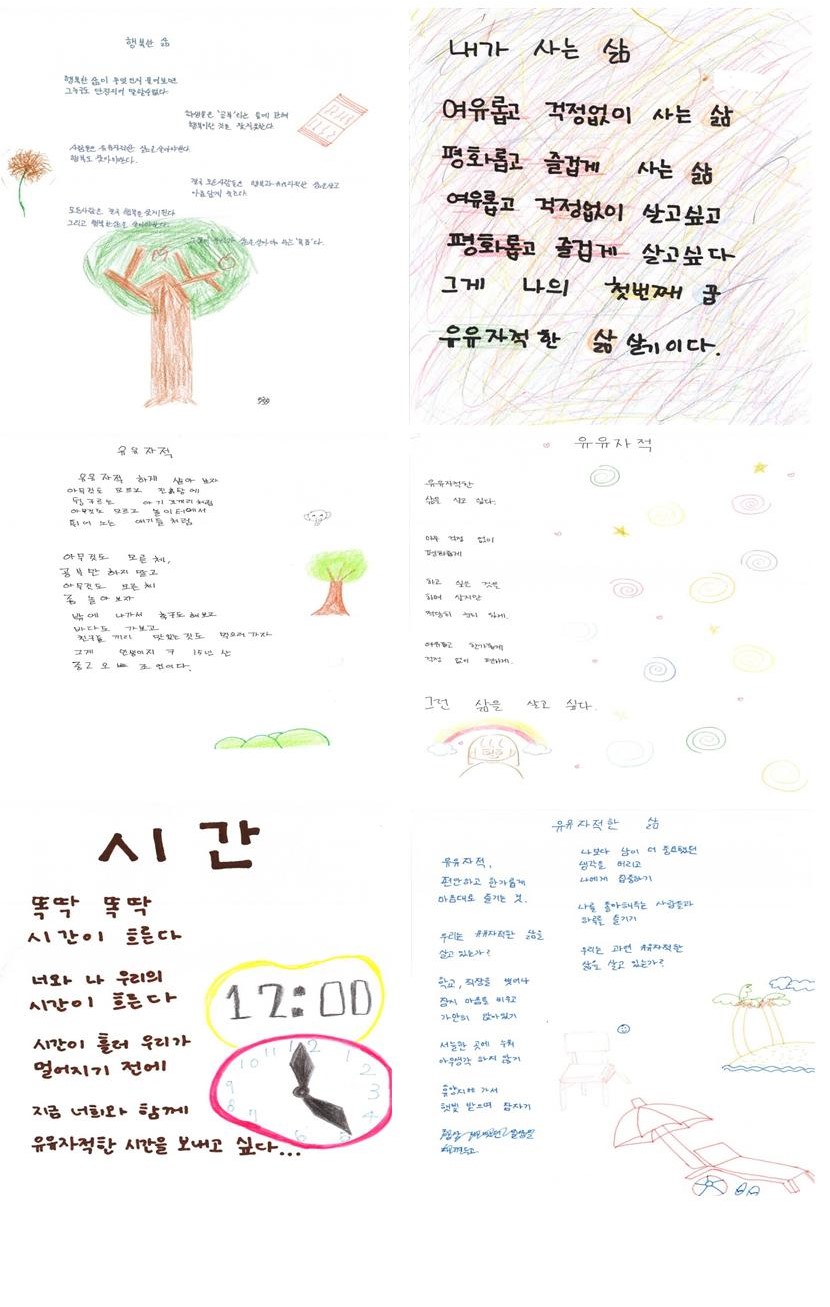 행복한 삶
행복한 삶이 무엇인지 물어보면
그누구도 단정지어 말할수없다
학생들은 '공부'라는 틀에 갇혀
행복이란 것을 찾지못한다
사람들은 유유자적한 삶을 살아야한다
행복도 찾아야한다.
결국 모든사람들은 행복과 유유자적한 삶을살고
아름답게 웃는다
모든사람은 결국 행복을 찾게된다
그리고 행복한삶을 살아야한다.
내가 사는 삶
여유롭고 걱정없이 사는 삶
평화롭고 즐겁게 사는 삶
여유롭고 걱정없이 살고싶고
평화롭고 즐겁게 살고싶다
그게 나의 첫번째 꿈
유유자적한 삶 살기이다.
유유자적
유유자적 하게 살아 보자
아무것도 모르고 진흙탕에
뒹구르는 아기 코끼리처럼
아무것도 모르고 놀이터에서
뛰어 노는 애기들 처럼
아무것도 모른 체,
공부만 하지 말고
아무것도 모른 체
좀 놀아보자
밖에 나가서 축구도 해보고
바다도 가보고
친구들 끼리 맛있는것도 먹으러 가자
그게 인생이지 ㅋ 15년 산
중2 오빠 조언이다.
유유자적
유유자적한
삶을 살고 싶다.
아무 걱정 없이
편하게
하고 싶은 것을
하며 살지만
적당히 쉬며 하게.
여유롭고 한가롭게
걱정 없이 편하게.
그런 삶을 살고 싶다.
시간
똑딱 똑딱
시간이 흐른다
너와 나 우리의
시간이 흐른다
시간이 흘러 우리가
멀어지기 전에
지금 너희와 함께
유유자적한 시간을 보내고 싶다...
12:00
10 11 12 1
9 2
8 3
7 4
6 5
유유자적한 삶
유유자적,
편안하고 한가롭게
마음대로 즐기는 것.
우리는 유유자적한 삶을
살고 있는가?
학교, 직장을 벗어나
잠시 마음을 비우고
가만히 앉아있기
서늘한 곳에 누워
아무생각 하지 않기
휴양지에 가서
햇빛 받으며 잠자기
나보다 남이 더 중요했던
생각을 버리고
나에게 집중하기
나를 좋아해주는 사람들과
하루를 즐기기
우리는 과연 유유자적한
삶을 살고 있는가?